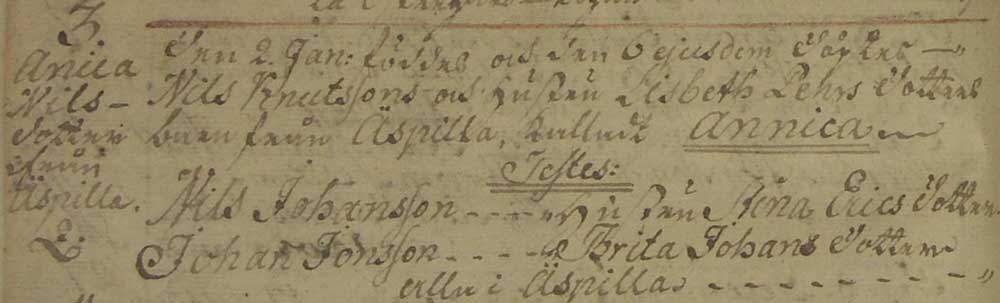 3.
Anica
Nils-
dotter
från
Äspilla.
2.
Den 2. Jan: föddes och den 6 ejusdem döptes —"
Nils Knutssons och hustru Lisbeth Pehrs dotters
barn från Äspilla, kalladt Annica
Testes:
Nils Johansson - - - - hustru Stina Erics dotter
Johan Jönsson - - - - & Brita Johans dotter
alla i Äspilla. - - - - - - - "